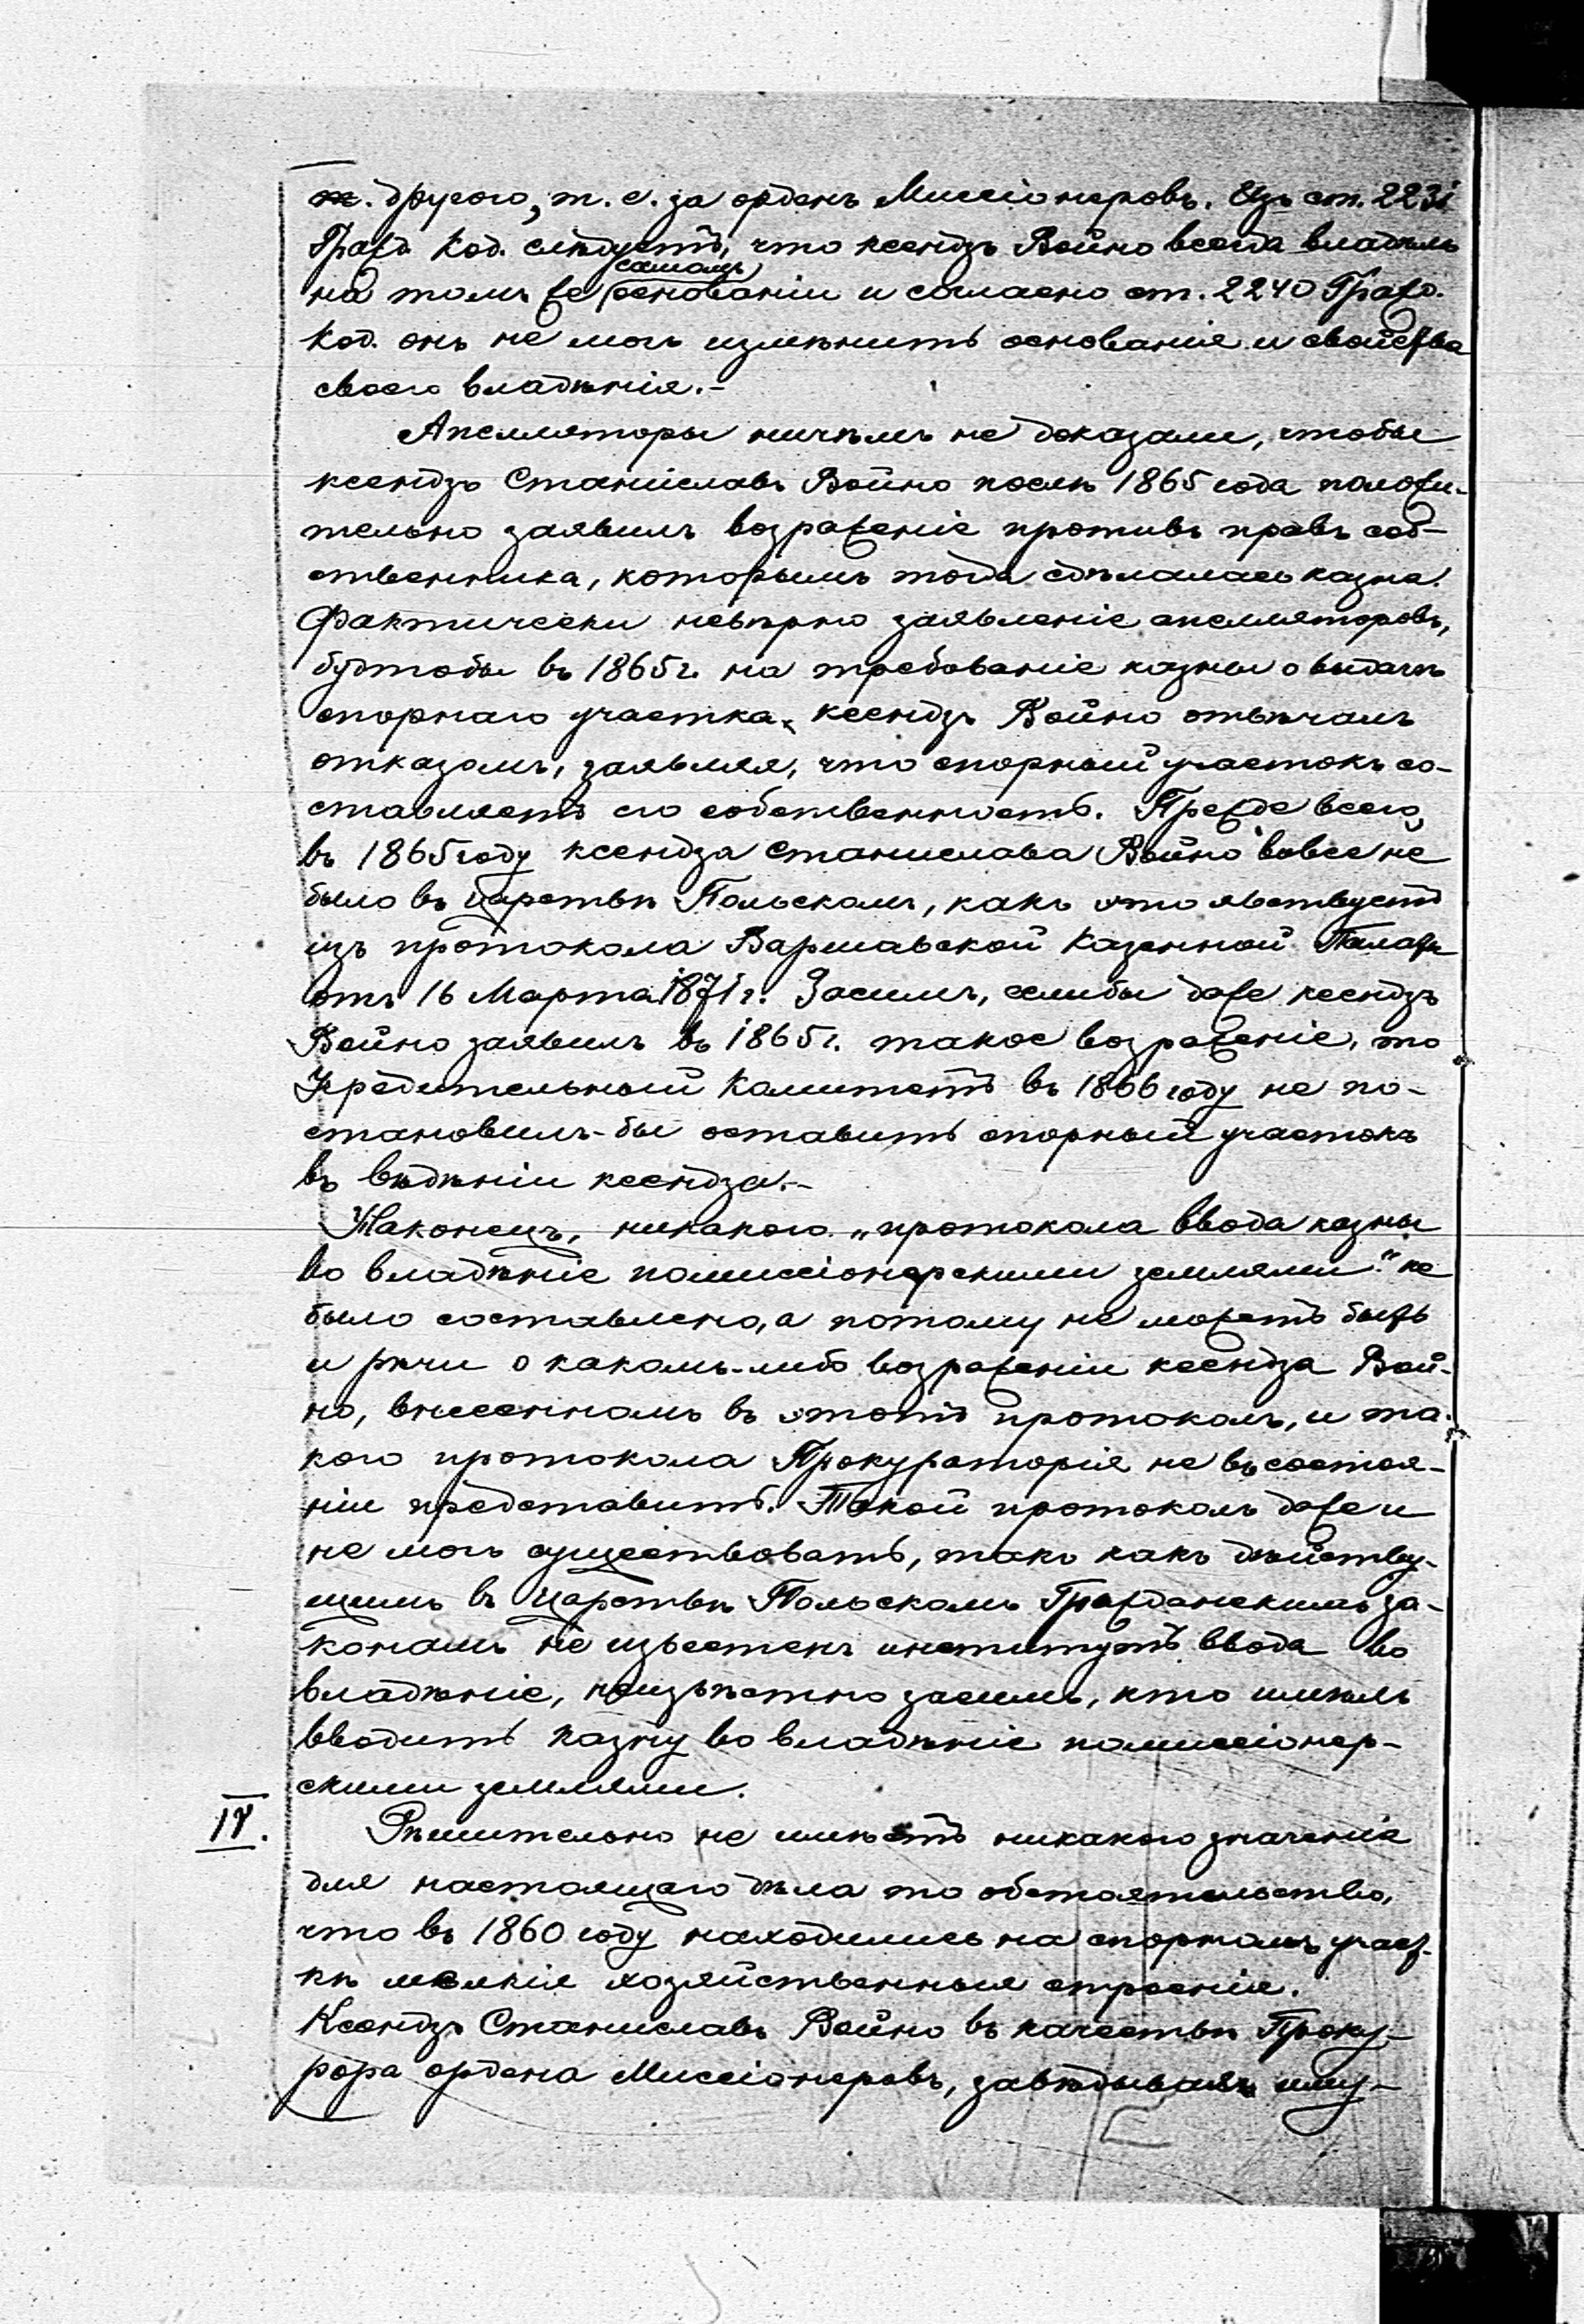 др. другого, т. е. за орденъ Миссіонеровъ. Изъ ст. 2231
Гражд. Код. слѣдуетъ, что ксендзъ Войно всегда владѣлъ
на томъ же (самомъ) основаніи и согласно ст. 2240 Гражд.
Код. онъ не могъ измѣнить основанія и свойства
своего владѣнія.-
Апелляторы ничѣмъ не доказали, чтобы
ксендзъ Станиславъ Войно послѣ 1865 года положи-
тельно заявилъ возраженіе противъ правъ соб-
ственника, которымъ тогда сдѣлалась казна.
Фактически невѣрно заявленіе апелляторовъ,
будтобы въ 1865 г. на требованіе казны о выдачѣ
спорнаго участка, ксендзъ Войно отвѣчалъ
отказомъ, заявляя, что спорный участокъ со-
ставляетъ его собственность. Прежде всего,
въ 1865 году ксендза Станислава Войно вовсе не
было въ Царствѣ Польскомъ, какъ это явствуетъ
изъ протокола Варшавской Казенной Палаты
отъ 16 Марта 1871 г. Засимъ, еслибы даже ксендзъ
Войно заявилъ въ 1865 г. такое возраженіе, то
Учредительный Комитетъ въ 1866 году не по-
становилъ-бы оставить спорный участокъ
въ вѣдѣніи ксендза.-
Наконецъ, никакого „протокола ввода казны
во владѣніе помиссіонерскими землями" не
было составлено, а потому не можетъ быть
и рѣчи о какомъ-либо возраженіи ксендза Вой-
но, внесенномъ въ этотъ протоколъ, и та-
кого протокола Прокураторія не въ состоя-
ніи представить. Такой протоколъ даже и
не могъ существовать, такъ какъ дѣйству-
щимъ въ Царствѣ Польскомъ Гражданскимъ за-
конамъ не извѣстенъ институтъ ввода во
владѣніе, неизвѣстно засимъ, кто имѣлъ
вводить казну во владѣніе помиссіонер-
скими землями.
IV.
Рѣшительно не имѣетъ никакого значенія
для настоящаго дѣла то обстоятельство,
что въ 1860 году находились на спорномъ участ-
кѣ мелкія хозяйственныя строенія.
Ксендзъ Станиславъ Войно въ качествѣ Проку-
рора ордена Миссіонеровъ, завѣдывалъ иму-